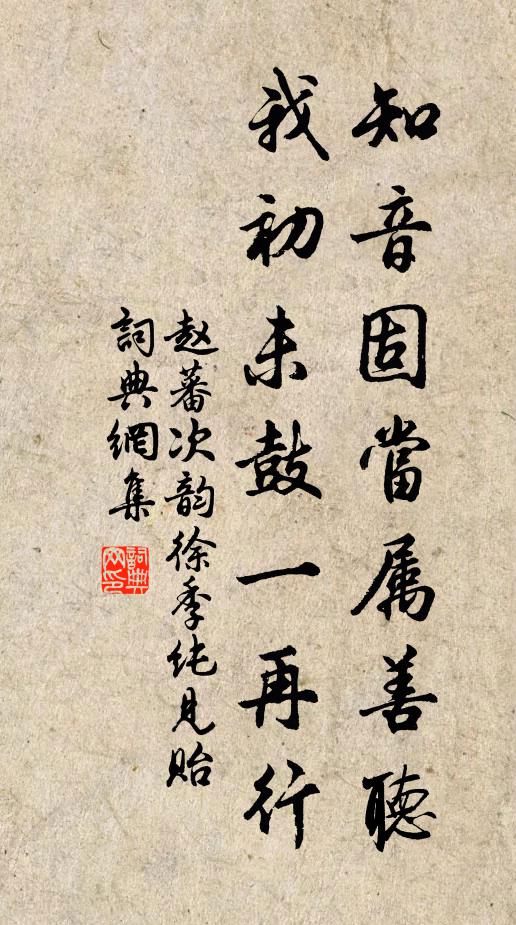 知音固當属善聽
我初未鼓一再行
赵蕃次韵徐季纯見贻
詞典網集
詞典网印